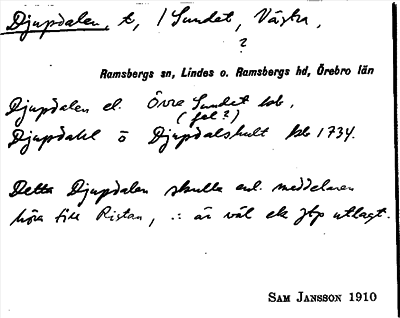 Djupdalen, t, / Sundet, Västra,
?
Ramsbergs sn, Lindes o. Ramsbergs hd, Örebro län
Djupdalen el. Övre Sundet kb,
(fel?)
Djupdahl ö Djupdalshult kb 1734.
Detta Djupdalen skulle enl. meddelaren
höra till Ristan, .: är väl ek jtp utlagt.
SAM JANSSON 1910